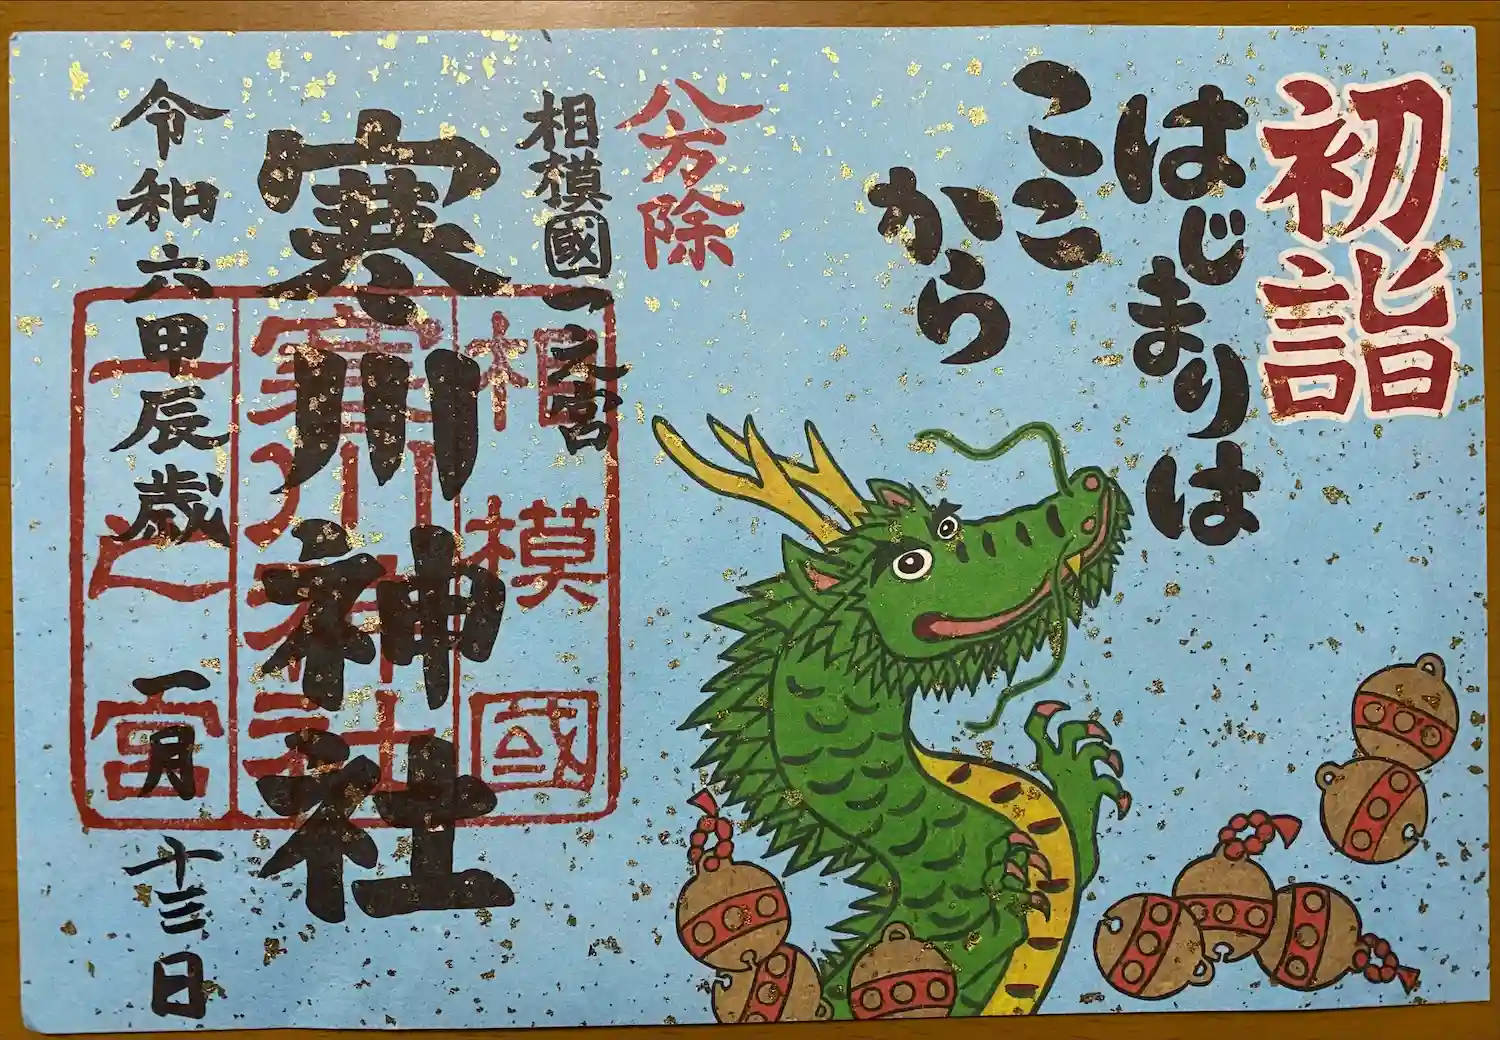 初詣
はじまりは
ここ
から
八方除
相模國一之宮
寒川神社
令和六甲辰歳
一月十三日
相模國
寒川神社
一之宮